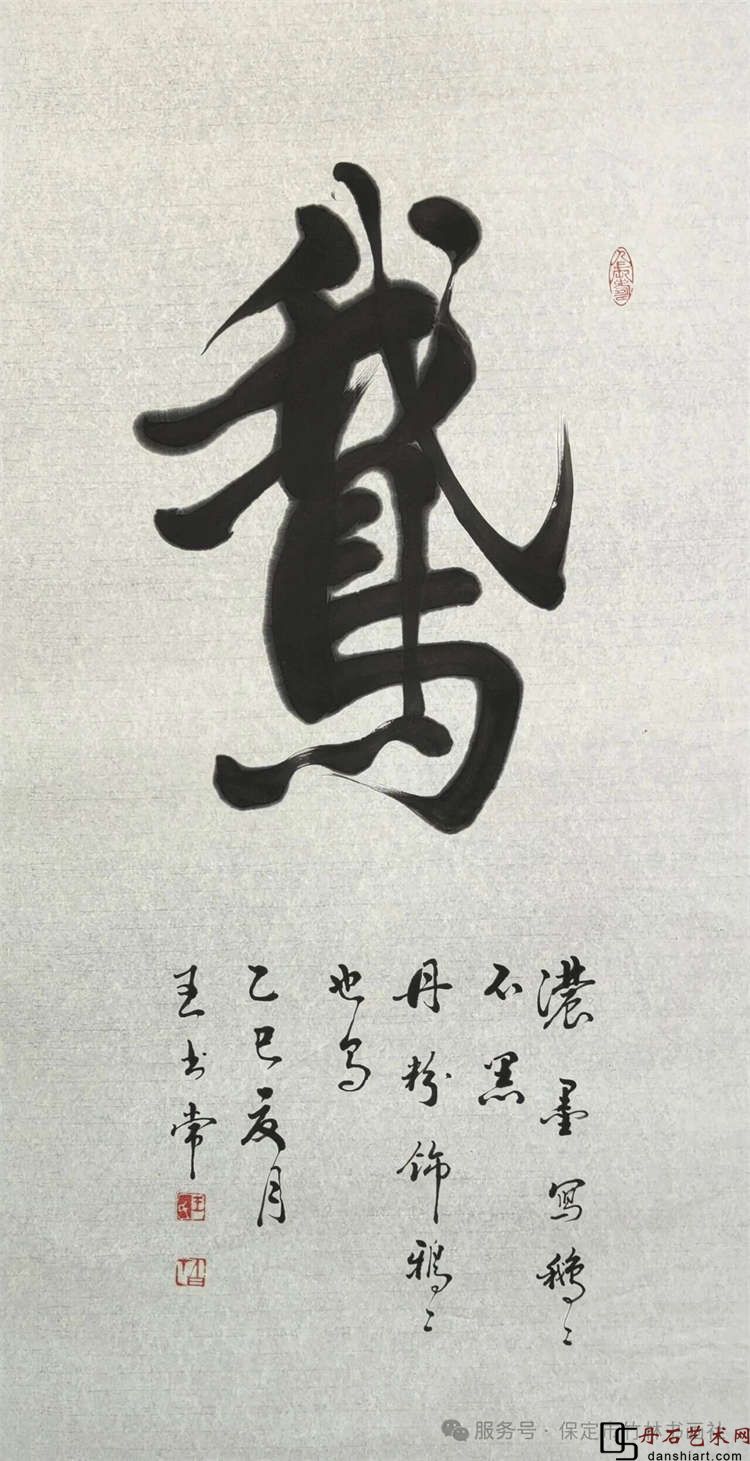 鵞
濃墨写鹅〻
不黑
丹粉饰鴉〻
也烏
乙巳夏月
王书常
服务号·保定市竹林书画社
丹石艺术网
danshiart.com